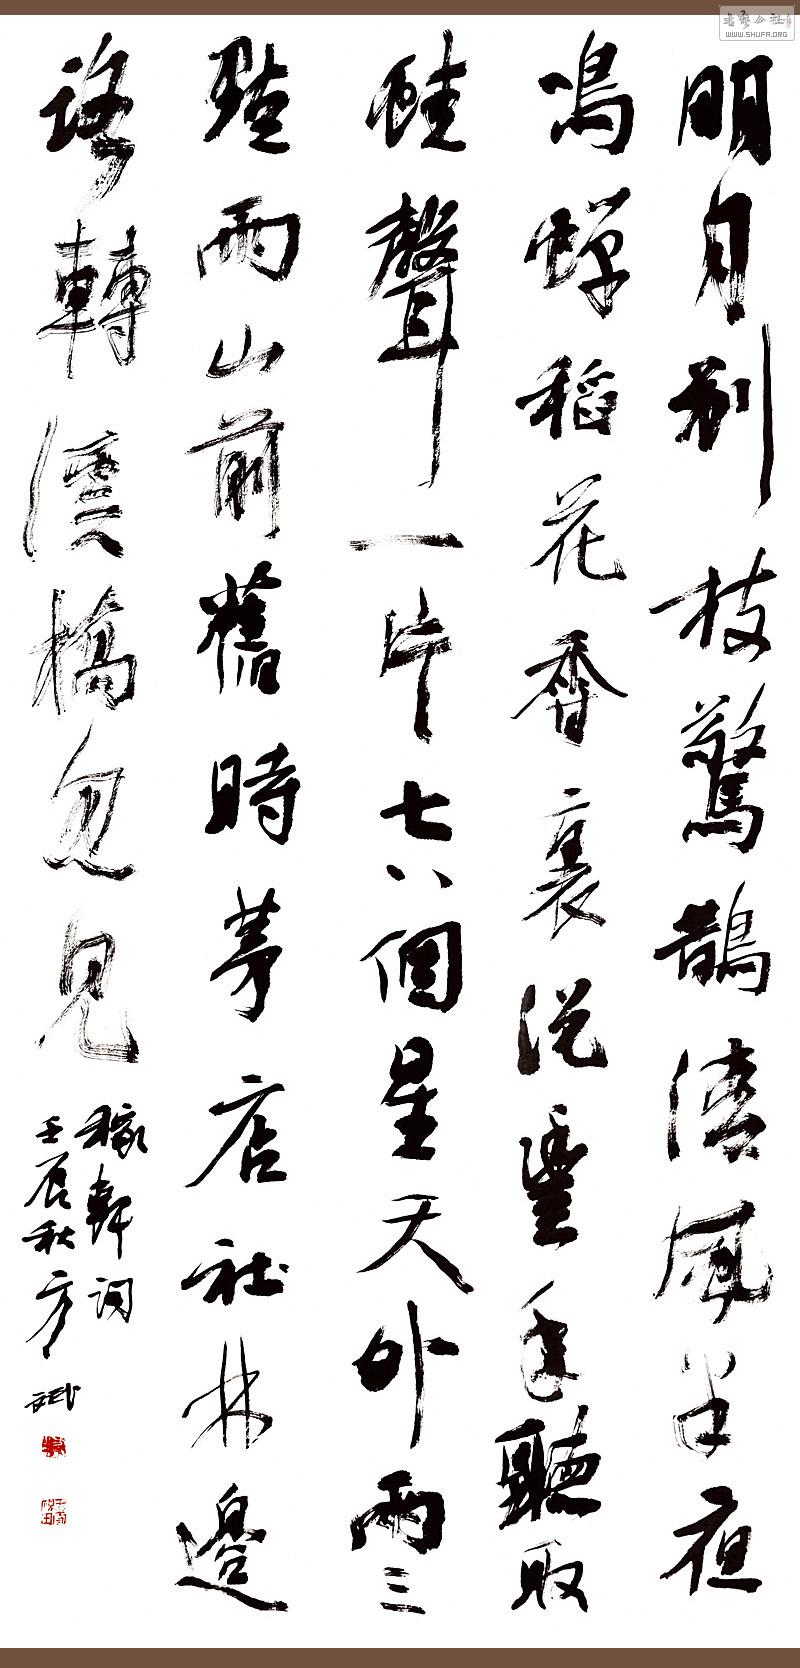 明月别枝驚鵲清風半夜
鳴蟬稻花香裏說豐年聽取
蛙聲一片七八個星天外兩三
點雨山前舊時茅店社林邊
路轉溪橋忽見
稼軒詞
壬辰秋方斌
書藝公社
WWW.SHUFA.ORG